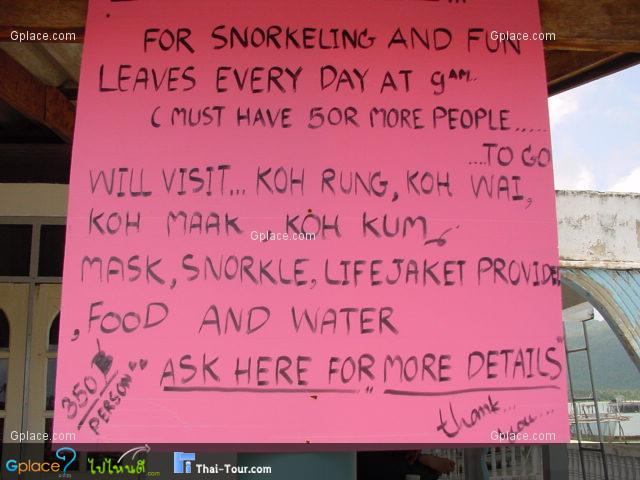 FOR SNORKELING AND FUN
LEAVES EVERY DAY AT 9AM..
( MUST HAVE 5 OR MORE PEOPLE.....
....TO GO
WILL VISIT... KOH RUNG, KOH WAI,
KOH MAAK , KOH KUM
MASK, SNORKLE, LIFEJAKET PROVIDE
, FOOD AND WATER
350 ฿
PERSON
ASK HERE FOR "MORE DETAILS"
thank...
you...
Gplace.com
Gplace.com
Gplace.com
Gplace.com
Gplace.com
Gplace.com
Gplace.com
Gplace.com
Gplace? .com
ไปไหนดี .com
Thai-Tour.com